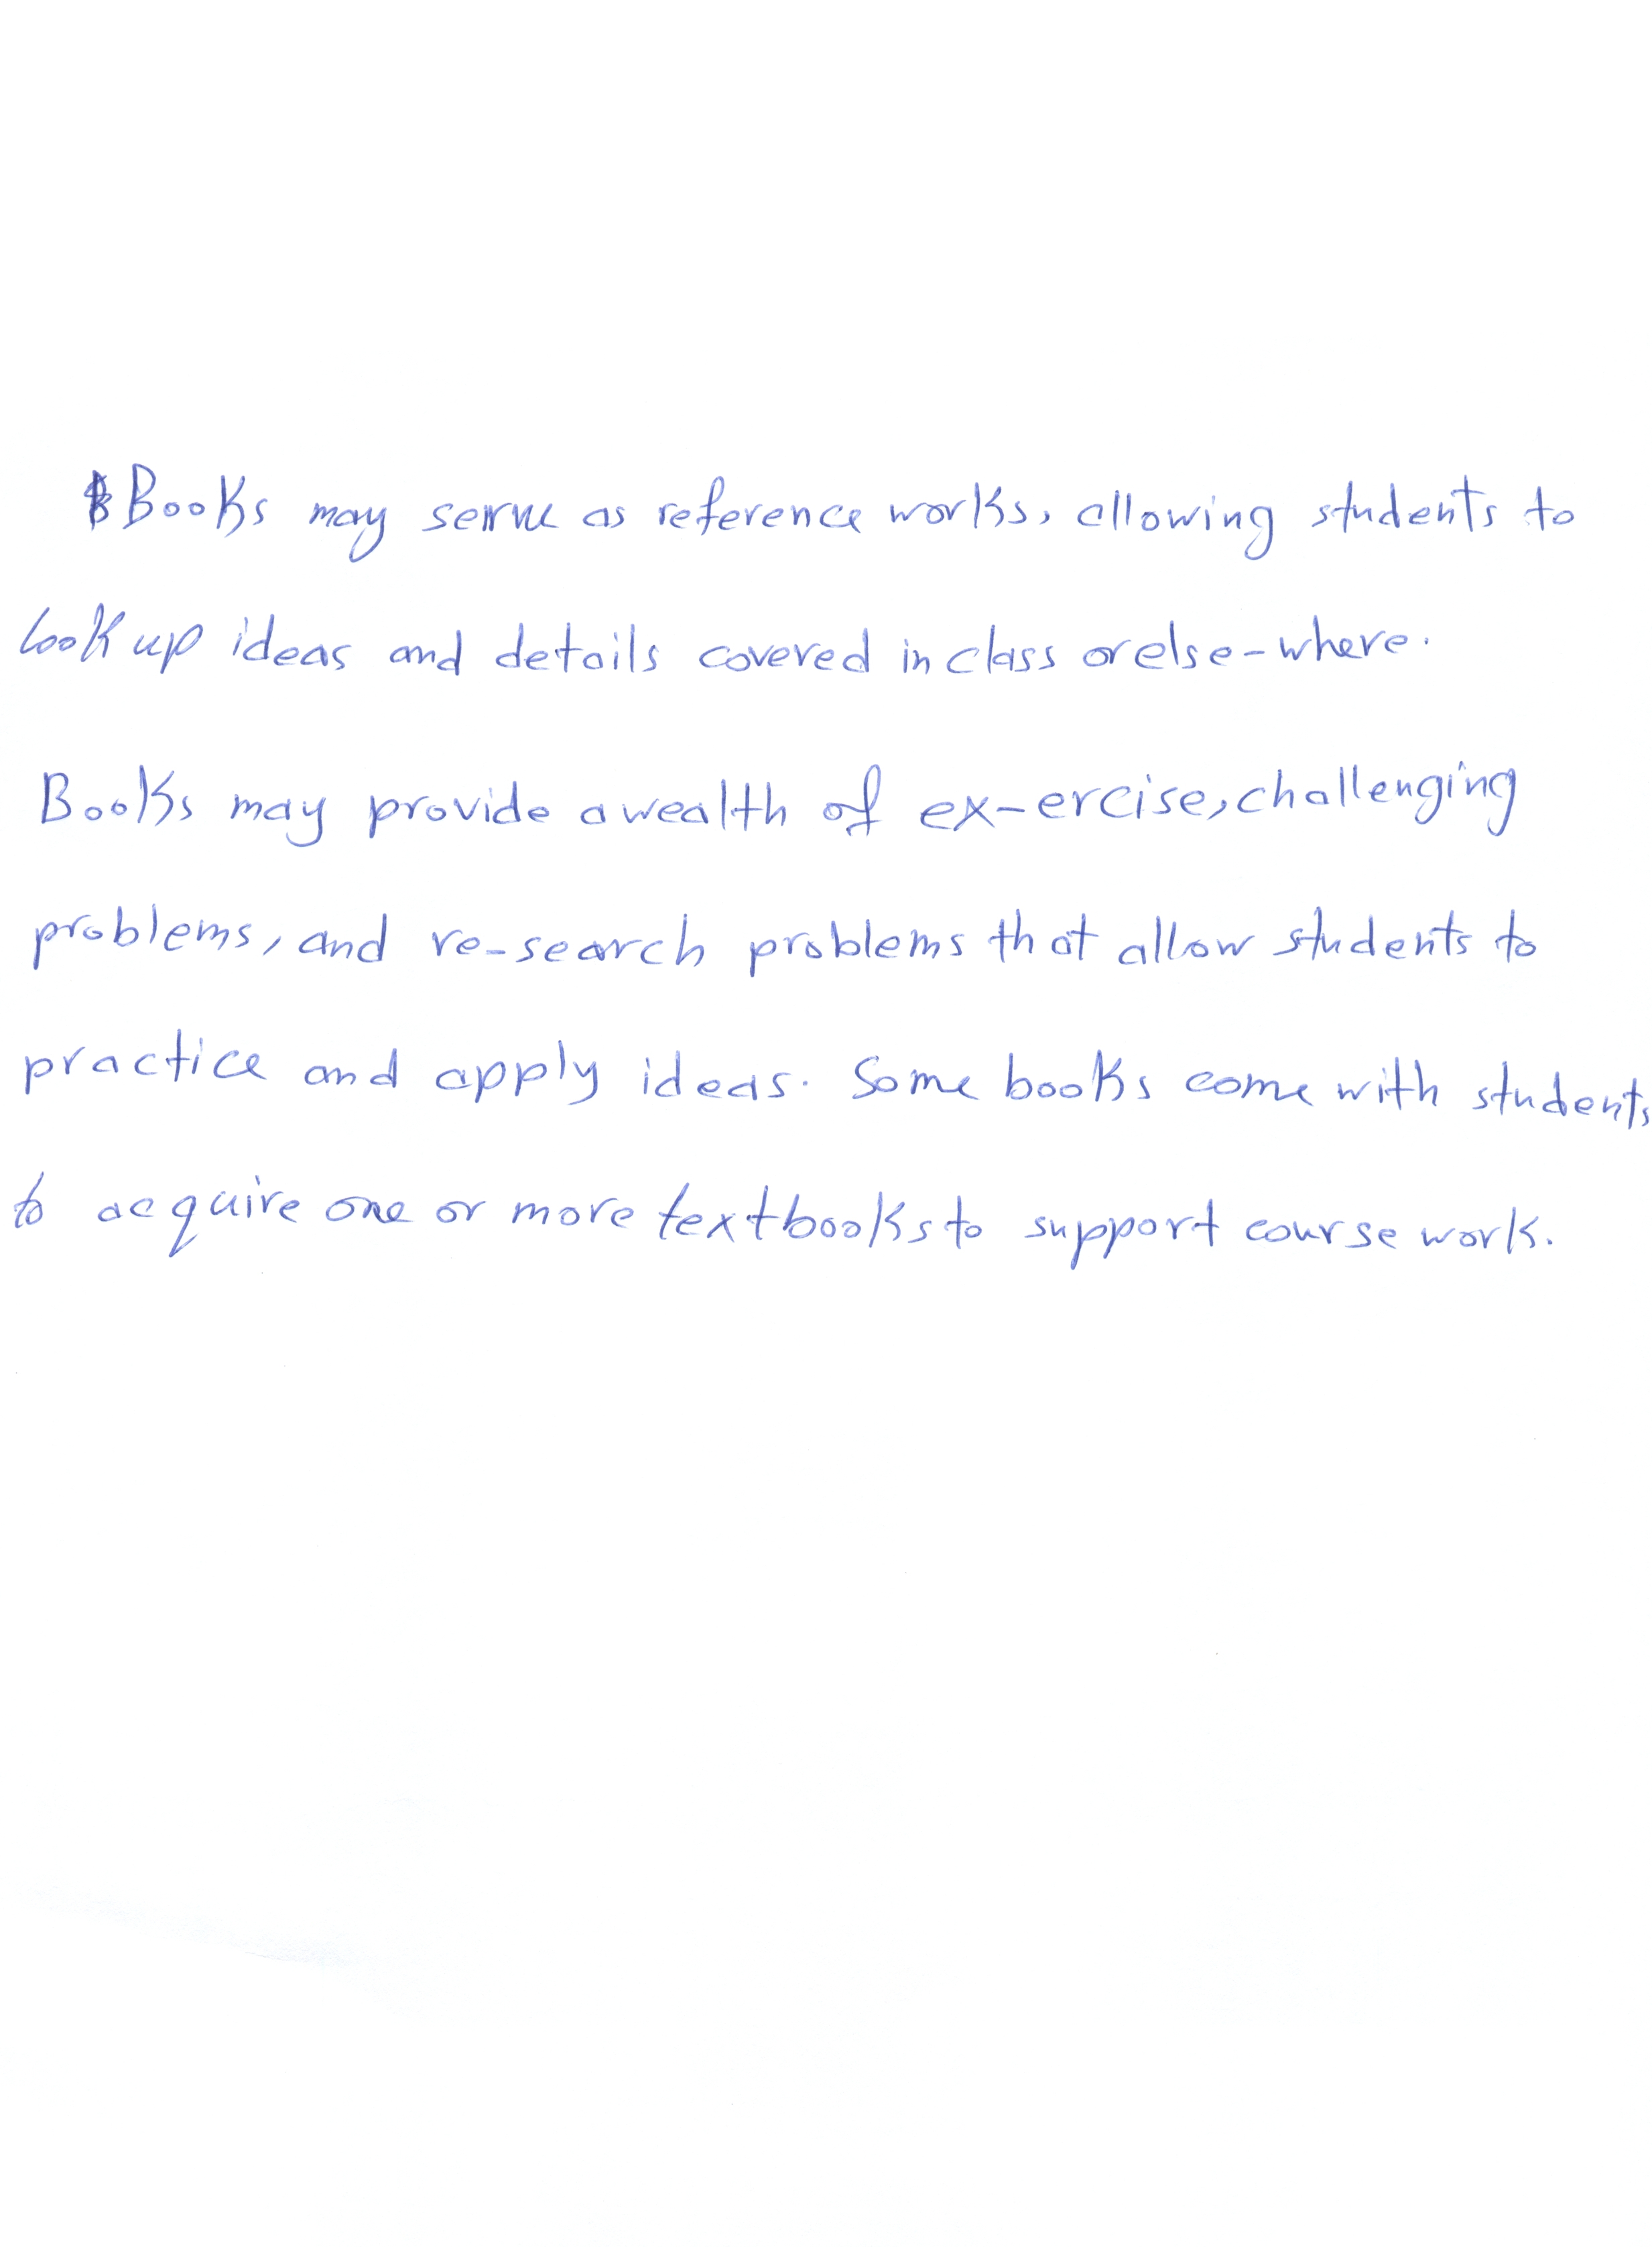 Books may serve as reference works, allowing students to
look up ideas and details covered in class or else-where.
Books may provide a wealth of ex-ercise, challenging
problems, and re-search problems that allow students to
practice and apply ideas. Some books come with students
to acquire one or more textbooks to support course work.